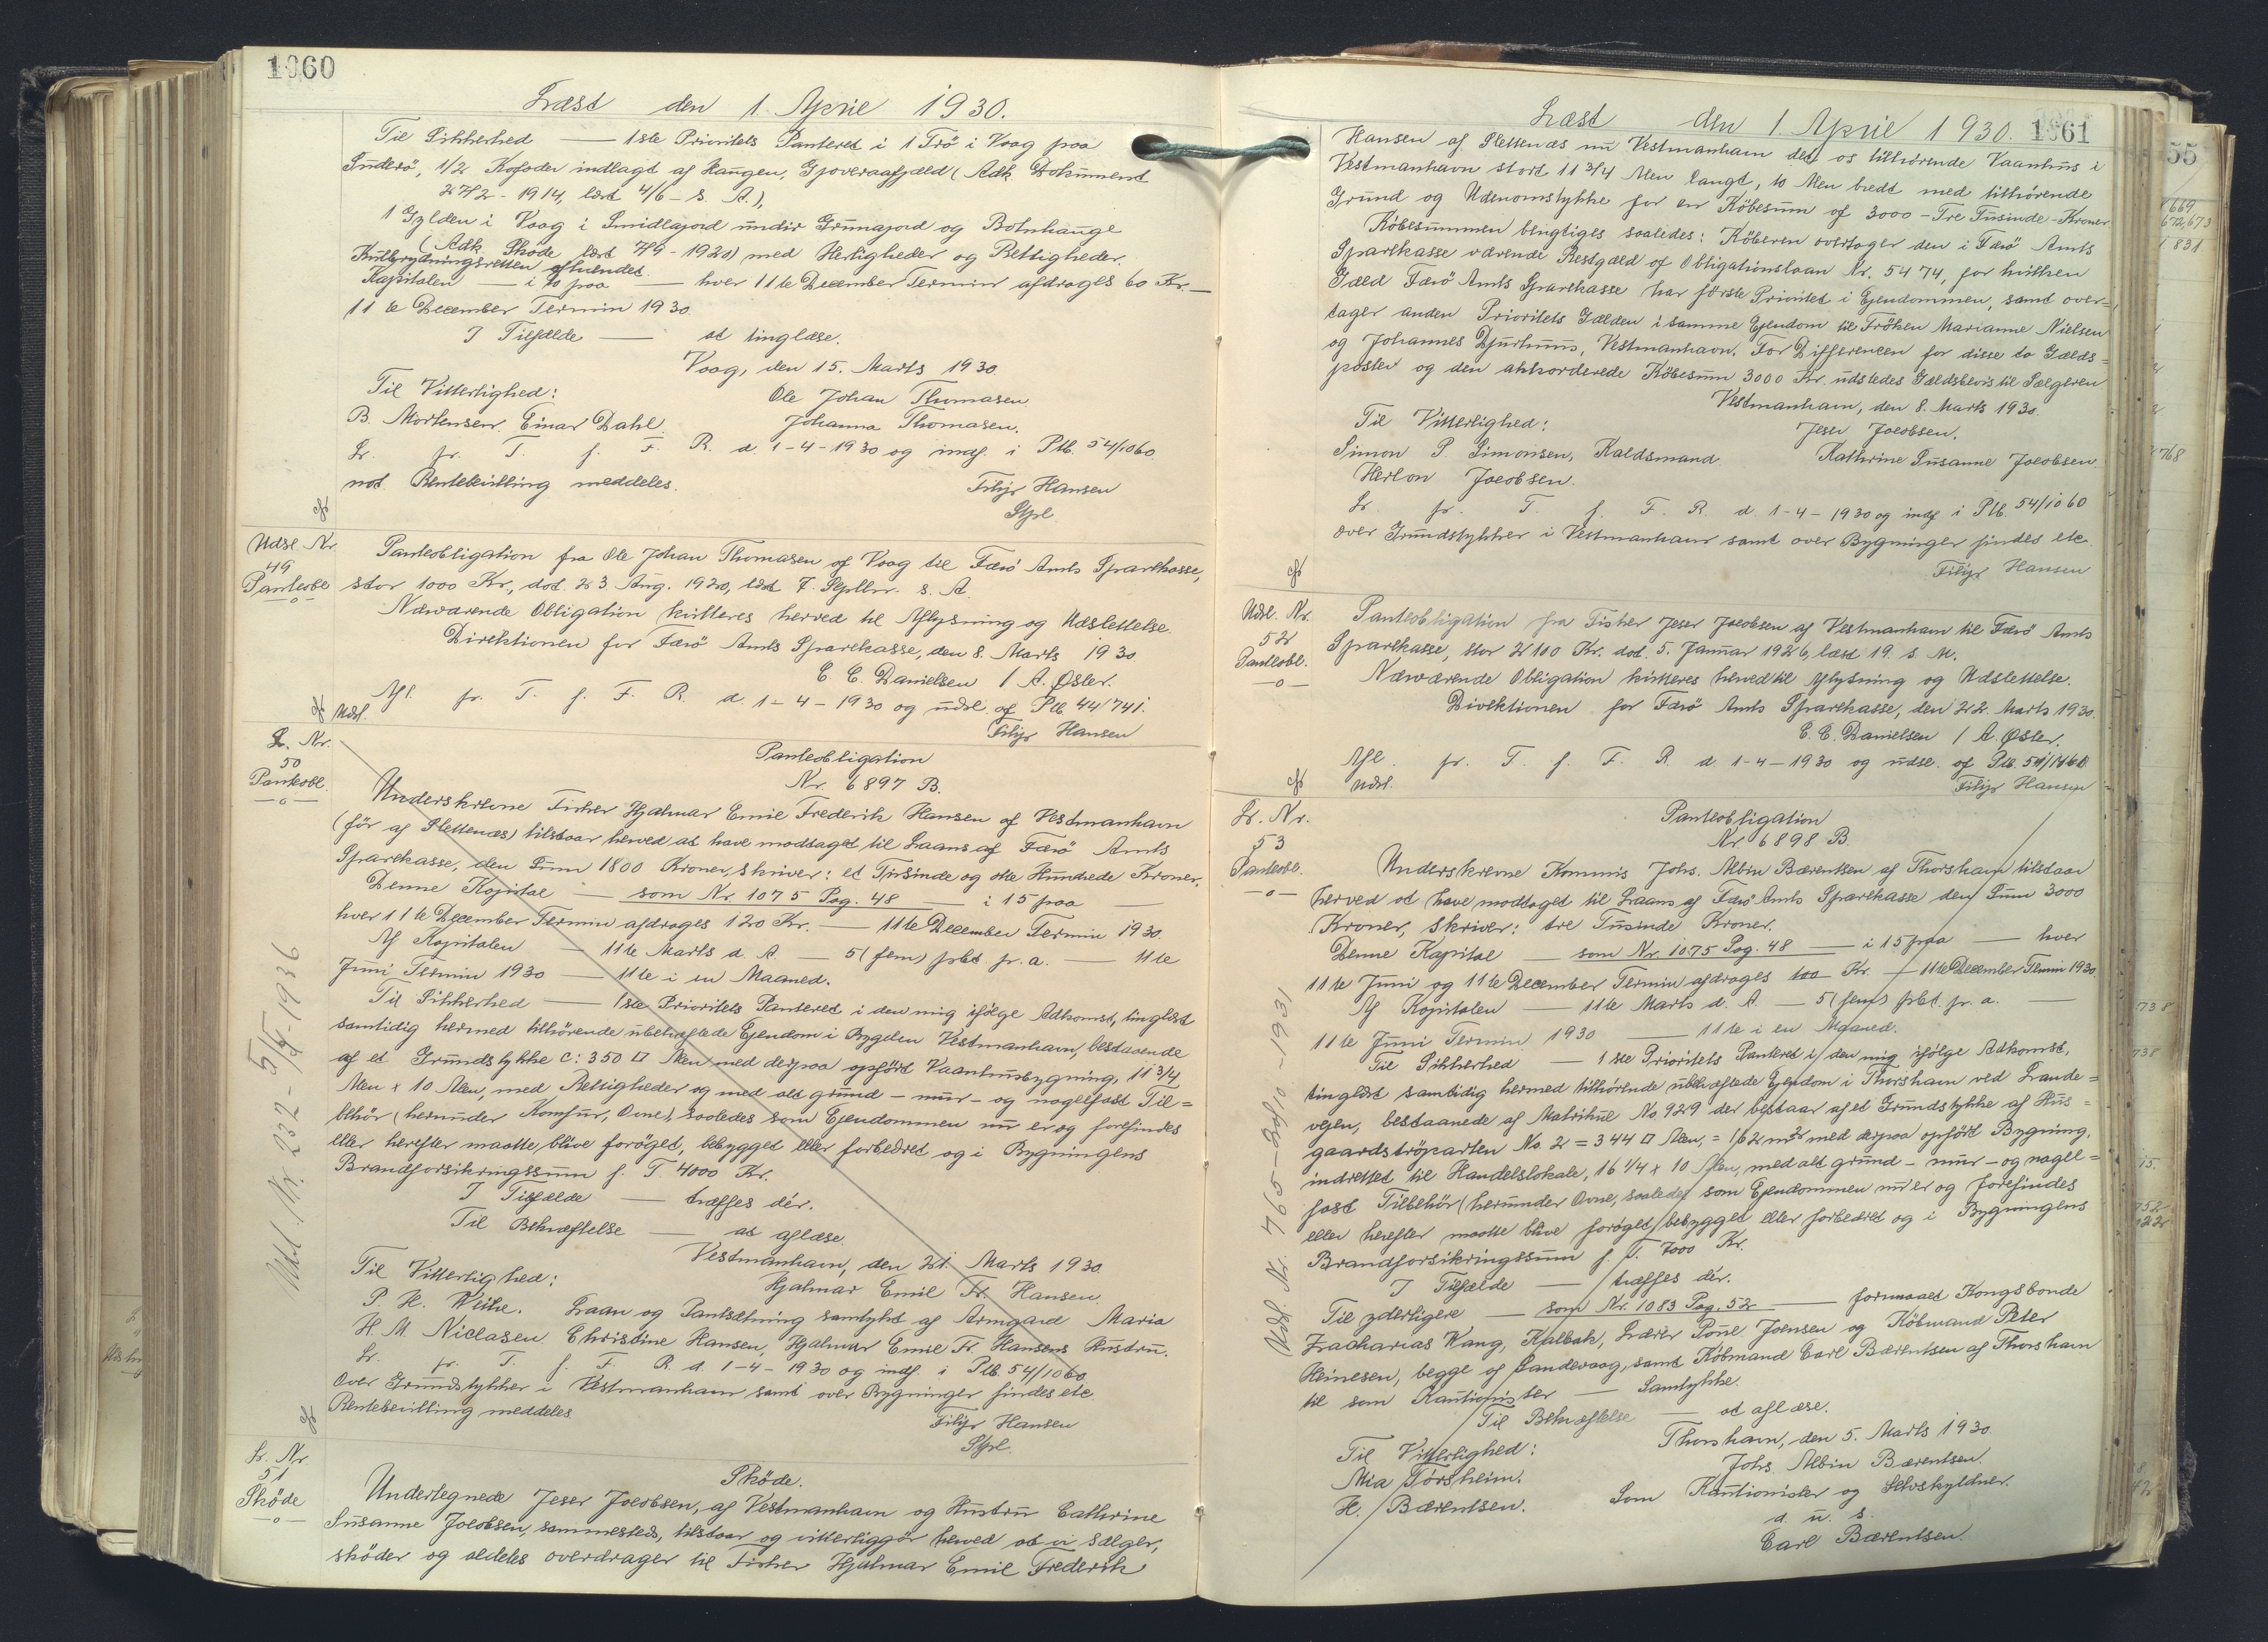 1060
Læst den 1. April 1930.
Til Sikkerhed — 1ste Prioritets Panteret i 1 Trö i Vaag paa
Suderö, 1/2 Kofoder indlagt af Haugen, Gjoveraafjæld (Adk. Dokument
27/2 - 1914, læst 4/6 - s. A.),
1 Gylden i Vaag i Smidlajord undir Grimajord og Botnhauge
(Adk. Skøde læst 7/9 - 1920) med Herligheder og Rettigheder.
afhændet.
Kapitalen — i 10 paa — hver 11te December Termin afdrages 60 Kr. —
11te December Termin 1930
I Tilfælde — at tinglæse.
Vaag, den 15. Marts 1930.
Til Vitterlighed:
Ole Johan Thomasen
B. Mortensen. Einar Dahl.
Johanna Thomasen.
Lr. fr. T. f. F. R. d. 1-4-1930 og indf. i Ptb. 54/1060
not Rentebevilling meddeles.
Filip Hansen
Stpl.
Udsl. Nr.
49
Panteobl.
—o—
Panteobligation fra Ole Johan Thomasen af Vaag til Færö Amts Sparekasse,
stor 1000 Kr., dat. 23. Aug. 1920, læst 7. Septbr. s. A.
Nærværende Obligation kvitteres herved til Aflysning og Udslettelse.
Direktionen for Færö Amts Sparekasse, den 8. Marts 1930
C. C. Danielsen / A. Øster.
Afl. fr. T. f. F. R. d. 1-4-1930 og udsl. af Ptb. 44/741.
Udsl.
Filip Hansen
Lr. Nr.
50
Panteobl.
—o—
Panteobligation
Nr. 6897 B.
Underskrevne Fisker Hjalmar Emil Frederik Hansen af Vestmanhavn
(för af Slettenæs) tilstaar herved at have modtaget til Laans af Færö Amts
Sparekasse, den Sum 1800 Kroner, skriver: et Tusinde og otte Hundrede Kroner.
Denne Kapital — som Nr. 1075 Pag. 48 — i 15 paa —
hver 11te December Termin afdrages 120 Kr. — 11te December Termin 1930.
Af Kapitalen — 11te Marts d. A. — 5 (fem) pCt. pr. a. — 11te
Juni Termin 1930 — 11te i en Maaned.
Til Sikkerhed — 1ste Prioritets Panteret i den mig ifølge Adkomst, tinglæst
samtidig hermed tilhörende ubehæftede Ejendom i Bygden Vestmanhavn, bestaaende
af et Grundstykke c: 350 □ Alen med derpaa opført Vaanhusbygning, 11 3/4
Alen x 10 Alen, med Rettigheder og med alt grund- mur- og nagelfast Til=
behör (herunder Komfur, Ovne), saaledes som Ejendommen nu er og forefindes
eller herefter maatte blive forøget, bebygget eller forbedret og i Bygningens
Brandforsikringssum f. T. 4000 Kr.
I Tilfælde — træffes dér.
Til Bekræftelse — at aflæse.
Vestmanhavn, den 21. Marts 1930.
Til Vitterlighed:
Hjalmar Emil Fr. Hansen.
P. H. Weihe. Laan og Pantsætning samtykt af Armgard Maria
H. M. Niclasen. Christine Hansen, Hjalmar Emil Fr. Hansens Hustru.
Lr. fr. T. f. F. R. d. 1-4-1930 og indf. i Ptb. 54/1060.
Over Grundstykker i Vestmanhavn samt over Bygninger findes etc
Rentebevilling meddeles
Filip Hansen
Stpl.
Udsl. Nr. 232 - 5/5-1936
Lr. Nr.
51
Sköde
—o—
Sköde.
Undertegnede Jeser Jacobsen, af Vestmanhavn og Hustru Cathrine
Susanne Jacobsen, sammesteds, tilstaar og vitterliggör herved at vi sælger,
sköder og aldeles overdrager til Fisker Hjalmar Emil Frederik
Læst den 1. April 1930. 1061
Hansen af Slettenæs nu Vestmanhavn det os tilhørende Vaanhus i
Vestmanhavn stort 11 3/4 Alen langt, 10 Alen bredt med tilhørende
Grund og Udenomstykke for en Köbesum af 3000 - Tre Tusinde - Kroner
Köbesummen berigtiges saaledes: Köberen overtager den i Færö Amts
Sparekasse værende Restgæld af Obligationslaan Nr. 5474, for hvilken
Gæld Færö Amts Sparekasse har förste Prioritet i Ejendommen, samt over=
tager anden Prioritets Gælden i samme Ejendom til Fröken Marianne Nielsen
og Johannes Djurhuus, Vestmanhavn. For Differencen for disse to Gælds=
poster og den akkorderede Köbesum 3000 Kr. udstedes Gældsbevis til Sælgeren
Vestmanhavn, den 8. Marts 1930.
Til Vitterlighed:
Jeser Jacobsen.
Simon P. Simonsen, Kaldsmand.
Kathrine Susanne Jacobsen.
Herlon Jacobsen.
Lr. fr. T. f. F. R. d. 1-4-1930 og indf. i Ptb. 54/1060
over Grundstykker i Vestmanhavn samt over Bygninger findes etc.
Filip Hansen
Udsl. Nr.
52
Panteobl.
—o—
Panteobligation fra Fisker Jeser Jacobsen af Vestmanhavn til Færö Amts
Sparekasse, stor 2100 Kr. dat. 5. Januar 1926, læst 19. s. M.
Nærværende Obligation kvitteres herved til Aflysning og Udslettelse.
Direktionen for Færö Amts Sparekasse, den 22. Marts 1930.
C. C. Danielsen / A. Øster.
Afl. fr. T. f. F. R. d. 1-4-1930 og udsl. af Ptb.
Udsl.
Filip Hansen
Lr. Nr.
53
Panteobl.
—o—
Panteobligation
Nr. 6898 B.
Underskrevne Kommis Johs. Albin Bærentsen af Thorshavn tilstaar
herved at have modtaget til Laans af Færö Amts Sparekasse den Sum 3000
Kroner, skriver: tre Tusinde Kroner.
Denne Kapital — som Nr. 1075 Pag. 48 — i 15 paa — hver
11te Juni og 11te December Termin afdrages 100 Kr. — 11te December Termin 1930.
Af Kapitalen — 11te Marts d. A. — 5 (fem) pCt. pr. a. —
11te Juni Termin 1930 — 11te i en Maaned.
Til Sikkerhed — 1ste Prioritets Panteret i den mig ifølge Adkomst,
tinglæst samtidig hermed tilhörende ubehæftede Ejendom i Thorshavn ved Lande=
vejen, bestaaende af Matrikul No. 929 der bestaar af et Grundstykke af Hus=
gaardströparten No. 2 = 344 □ Alen, = 162 m² med derpaa opført Bygning,
indrettet til Handelslokale, 16 1/4 x 10 Alen, med alt grund- mur- og nagel=
fast Tilbehör (herunder Ovne, saaledes som Ejendommen nu er og forefindes
eller herefter maatte blive forøget, bebygget eller forbedret og i Bygningens
Brandforsikringssum f. T. 7000 Kr.
I Tilfælde — træffes dér.
Til yderligere — som Nr. 1083 Pag. 52 — formaaet Kongsbonde
Zacharias Wang, Kalbak, Lærer Poul Joensen og Köbmand Peter
Heinesen, begge af Sandevaag, samt Köbmand Carl Bærentsen af Thorshavn
til som Kautionister — Samtykke.
Til Bekræftelse — at aflæse.
Thorshavn, den 5. Marts 1930.
Til Vitterlighed:
Johs. Albin Bærentsen.
Mia Torsheim.
Som Kautionister og Selvskyldner.
H. Bærentsen.
d. u. s.
Carl Bærentsen.
55
669
672,673
831
768
738
738
15.
752